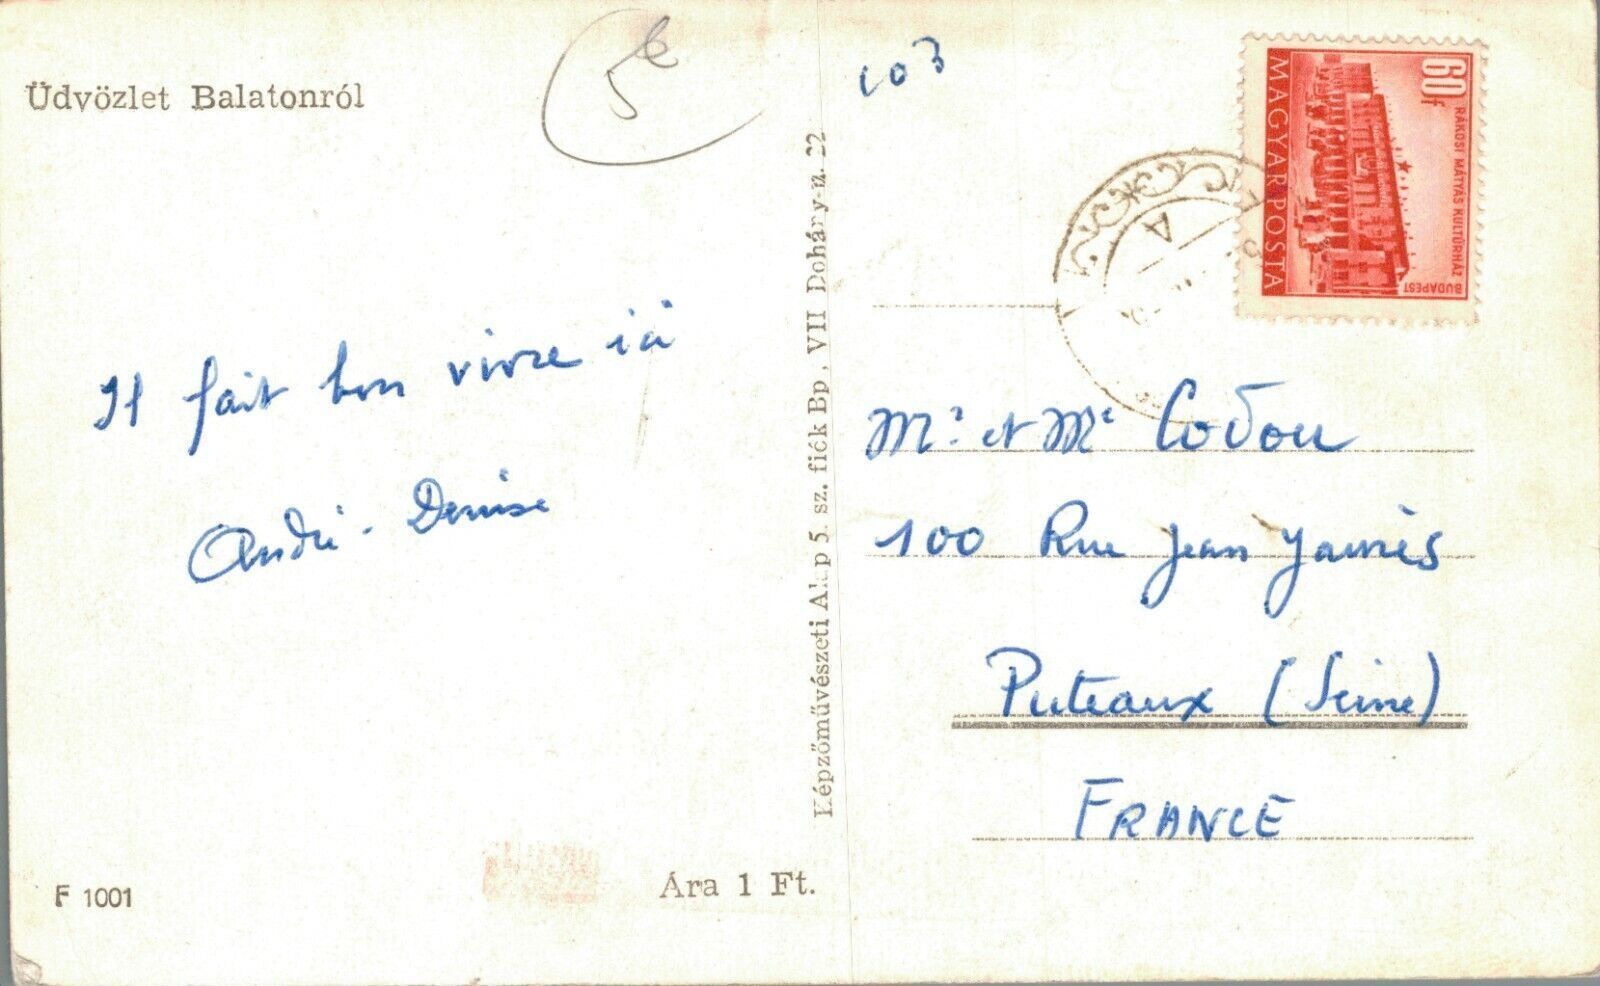 Üdvözlet Balatonról
5€
Il fait bon vivre ici
André - Denise
F 1001
Ára 1 Ft.
Képzőművészeti Alap 5. sz. fiók Bp, VII Dohány-u. 22
103
60f
MAGYAR POSTA
RÁKOSI MÁTYÁS KULTÚRHÁZ
BUDAPEST
Mr et Me Codou
100 Rue Jean Jaurès
Puteaux (Seine)
FRANCE